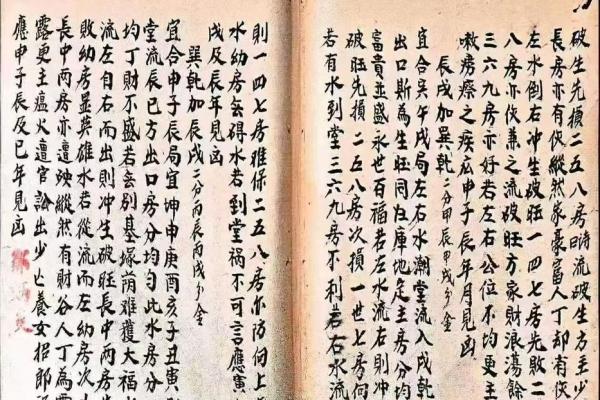 破生先損二五八房時流破生方主少
長房亦有伎縱然家豪富人丁却有伎
左水倒右冲生破旺一四七房先敗二
八房亦伎兼之流破旺方家財浪蕩餘
三六九房亦好若左右公位不均更主
嗽癆瘵之疾應申子辰年月見凶
辰戌加巽乾 二分甲辰甲戌分金
宜合寅午戌局左右水潮堂流入戌乾
出口斯為生旺同归庫地定主房分均
富貴並盛永世百福若左水流右則冲
破旺先損二五八房次損一世七房何
若有水到堂三六九房不利若右水流
則一四七房雖保二五八房亦防向上
水幼房無碍水若到堂禍不可言應寅
戌及辰年見凶
巽乾加辰戌 二分丙辰丙戌分金
宜合申子辰局宜坤申庚酉亥子丑寅
堂流辰巳方出口房分均勻此水房分
均丁財不盛若無別基塚蔭難獲大福
流左自右而出則冲生破旺長中兩房
敗幼房显英雄水若從流而左幼房次
長中兩房亦遭殃縱然有財谷人丁為
露更主瘟火遭官訟出少亡養女招郎
應申子辰及巳年見凶